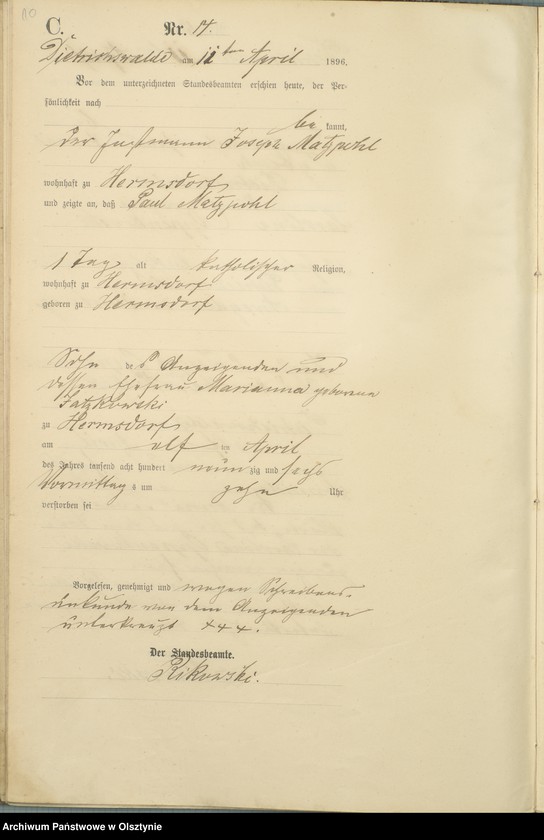 C.
Nr. 17.
Dietrichswalde am 11ten April 1896.
Vor dem unterzeichneten Standesbeamten erschien heute, der Per-
sönlichkeit nach
be kannt,
der Instmann Joseph Matzpohl
wohnhaft zu Hermsdorf
und zeigte an, daß Paul Matzpohl
1 Tag alt katholischer Religion,
wohnhaft zu Hermsdorf
geboren zu Hermsdorf
Sohn des Anzeigenden und
dessen Ehefrau Marianna geborene
zu Hermsdorf
am elf ten April
des Jahres tausend acht hundert neun zig und sechs
Vormittag s um zehn Uhr
verstorben sei
Vorgelesen, genehmigt und wegen Schreibens-
unkunde von dem Anzeigenden
unterkreuzt +++.
Der Standesbeamte.
Rikowski.
Archiwum Państwowe w Olsztynie